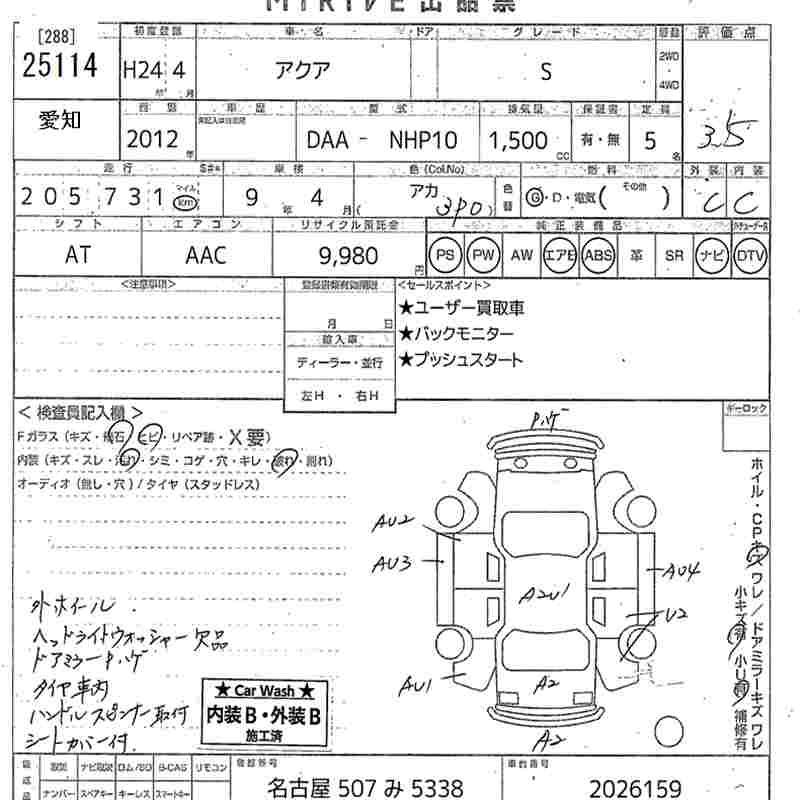 MIRIVE出品票
[288]
25114
初度登録 車名 ドア グレード 駆動 評価点
H24 4 アクア S 2WD
年 月 4WD
愛知
西暦 車歴 型式 排気量 保証書 定員
2012 年 DAA - NHP10 1,500 CC 有・無 5 名 3.5
走行 車検 色(Col.No) 燃料 外装 内装
205731 マイル km 9 年 4 月 アカ 3P0 色替 G・D・電気( その他 ) C C
シフト エアコン リサイクル預託金 純正装備品
AT AAC 9,980 円 PS PW AW エアB ABS 革 SR ナビ DTV
<注意事項> 登録書類有効期限 <セールスポイント>
★ユーザー買取車
月 日 ★バックモニター
輸入車
ディーラー・並行 ★プッシュスタート
左H ・ 右H
<検査員記入欄> オーロック
Fガラス(キズ・飛石・ヒビ・リペア跡・X要)
内装(キズ・スレ・汚れ・シミ・コゲ・穴・キレ・破れ・割れ)
オーディオ(無し・穴)/タイヤ(スタッドレス)
P,ハゲ
AU2
AU3
AU4
A2U1
U2
AU1
A2
A2
ホイル・CPキズワレ/ドアミラーキズワレ
小キズ有 小U有 補修有
外ホイール
ヘッドライトウォッシャー欠品
ドアミラーPハゲ
タイヤ車内
ハンドルスピンナー取付
シートカバー付
★ Car Wash ★
内装B・外装B
施工済
取説 ナビ取説 ロム/SD B-CAS リモコン 登録番号 車台番号
ナンバー スペアキー キーレス スマートキー 名古屋 507 み 5338 2026159